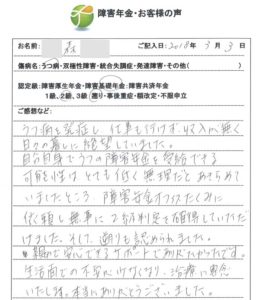 障害年金・お客様の声
お名前: 森
ご記入日: 2018年 3月 3日
傷病名: うつ病・双極性障害・統合失調症・発達障害・その他( )
認定級: 障害厚生年金・障害基礎年金・障害共済年金
1級、2級、3級、遡り・事後重症・額改定・不服申立
ご感想など:
うつ病を発症し、仕事も行けず収入が無く
日々の暮しに絶望していました。
自分自身でうつの障害年金を受給できる
可能性は、とても低く無理だとあきらめて
いましたところ、障害年金オフィスたくみに
依頼し無事に2級の判定を獲得していただ
けました。そして、遡りも認められました。
親切で安心できるサポートでありがたかったです。
生活面での不安がなくなり、治療に専念
いたします。本当にありがとうございました。